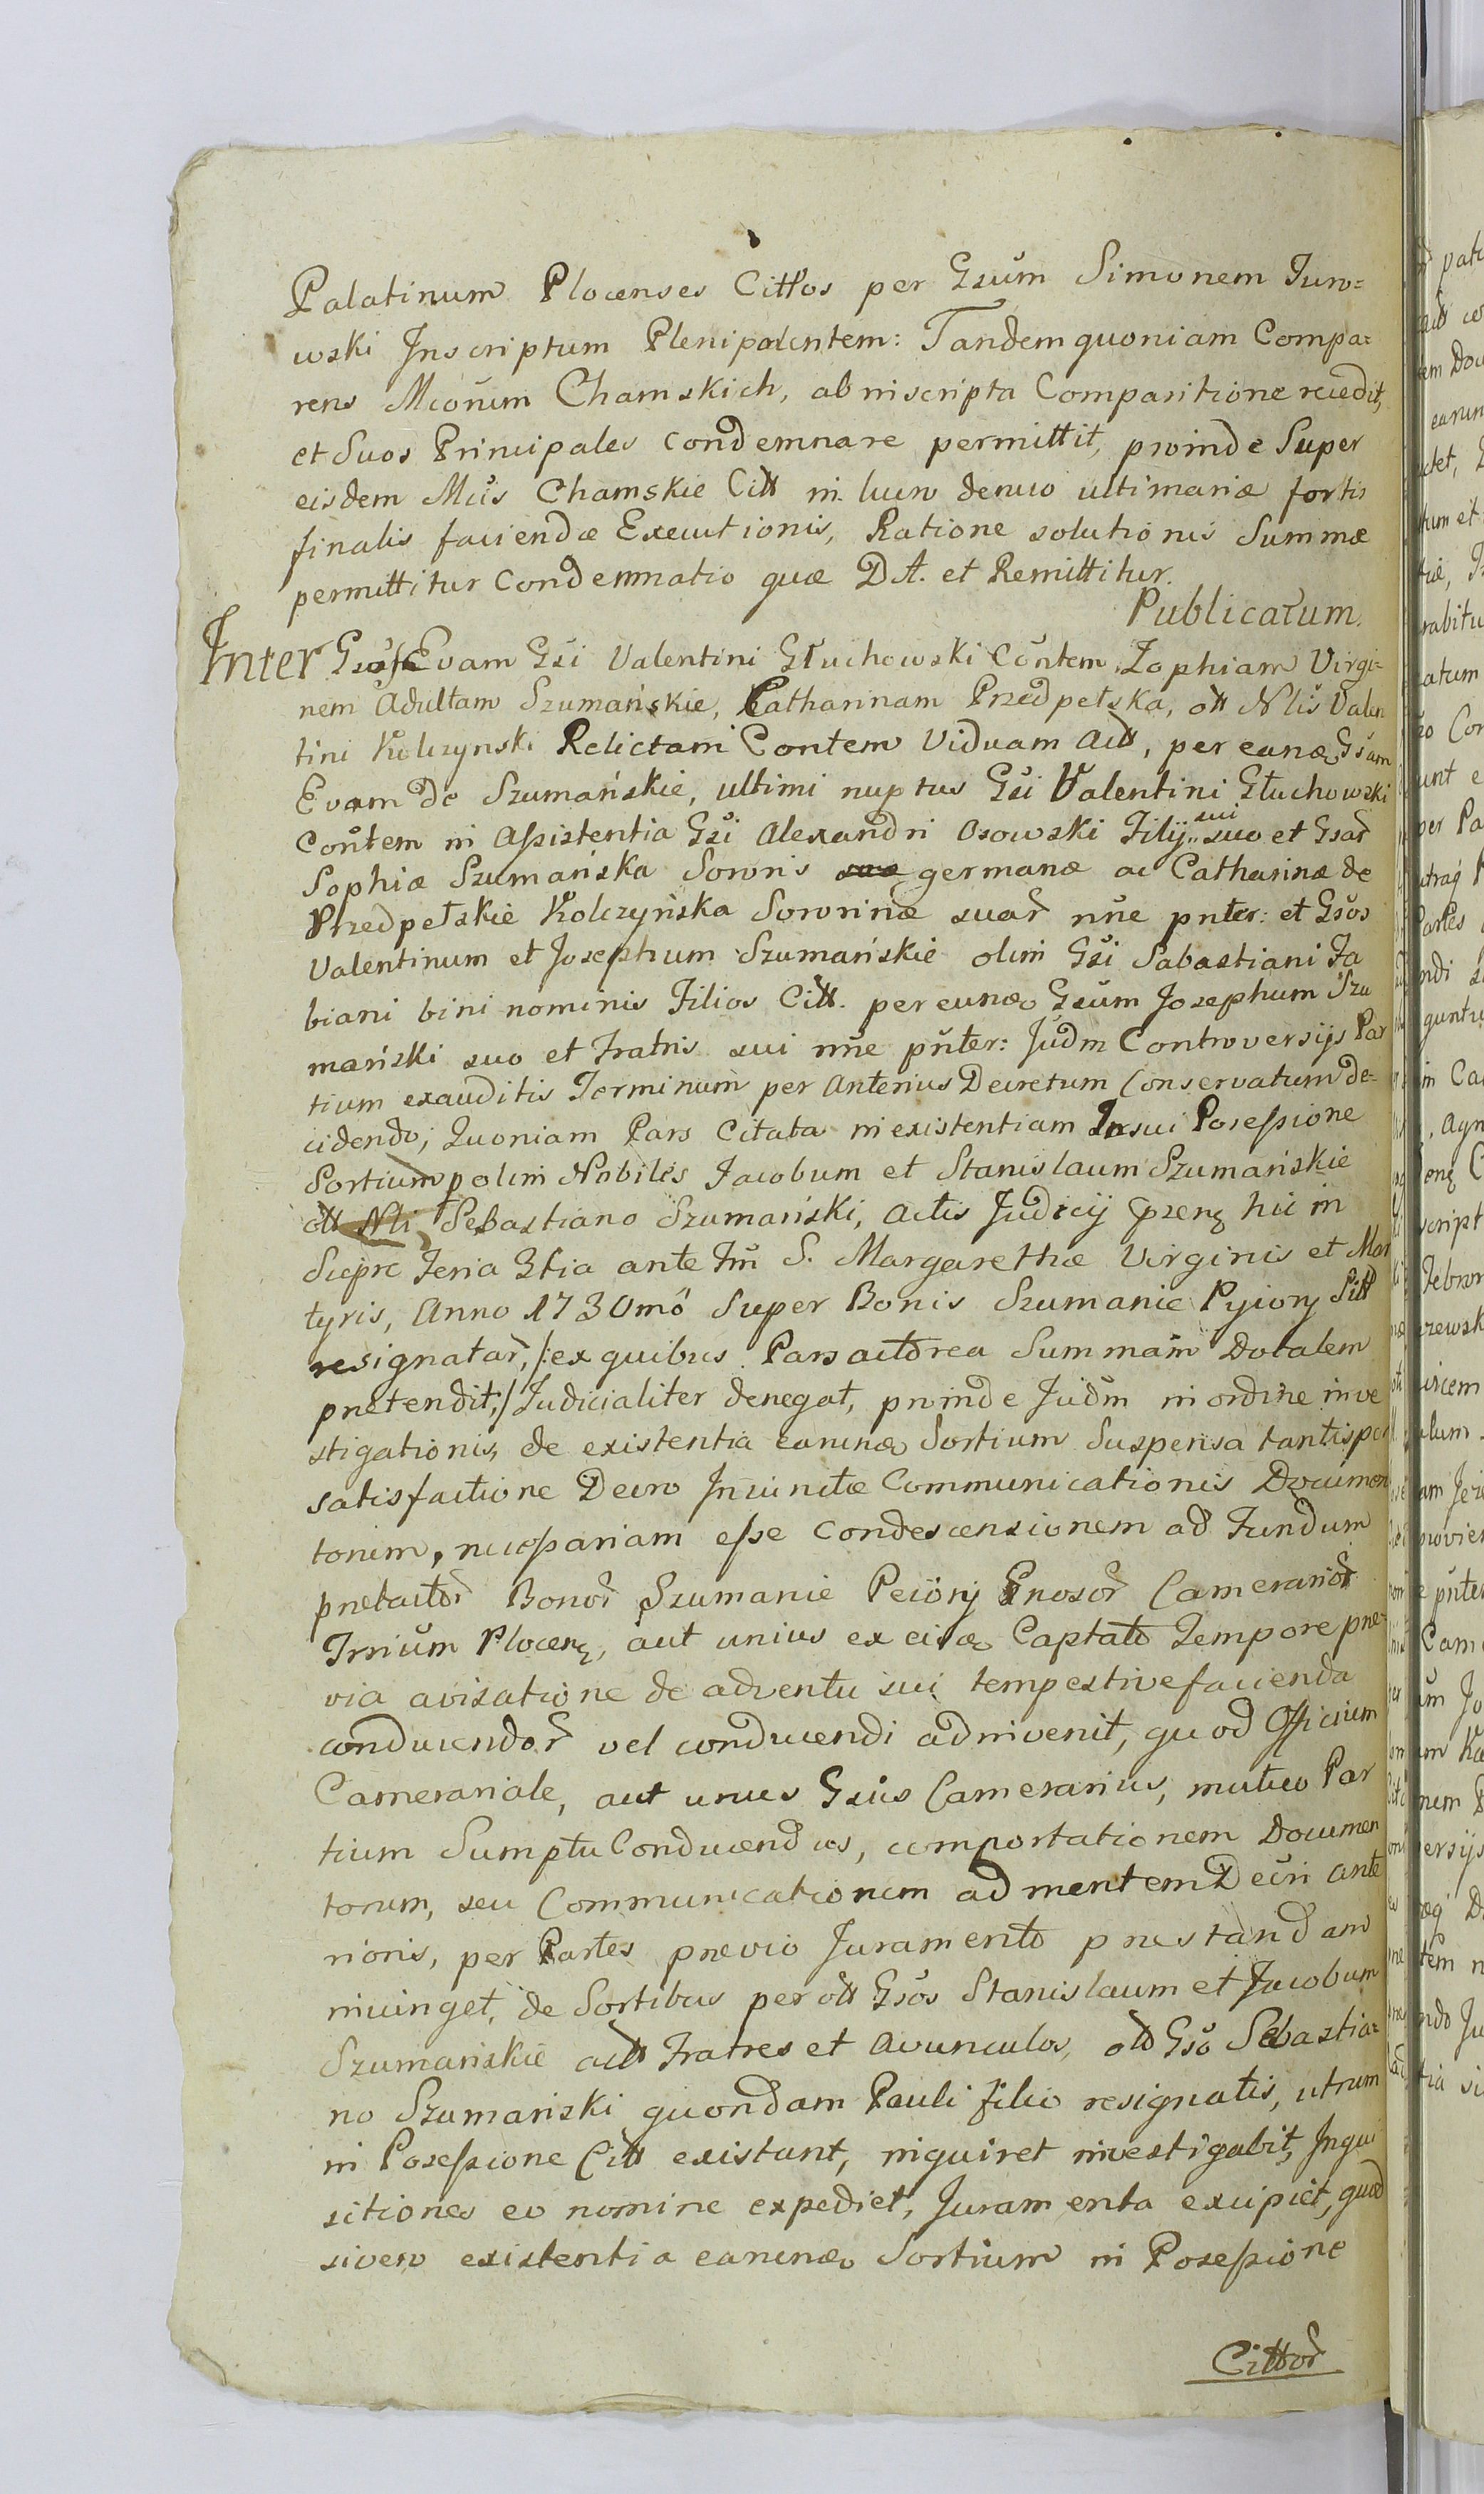 Palatinum Plocenses Cittos per Gsum Simonem Turo=
wski Inscriptum Plenipotentem: Tandem quoniam Compa=
rens Mcorum Chamskich, ab inscripta Comparitione recedit,
et Suos Principales condemnare permittit, proinde Super
eisdem Mcis Chamskie Citt in lucro denuo ultimariæ fortis
finalis faciendæ Executionis, Ratione solutionis Summæ
permittitur Condemnatio quæ D.A. et Remittitur.
Publicatum.
Inter Evam Gsi Valentini Głuchowski Contem, Zophiam Virgi=
nem Adultam Szumańskie, Catharinam Przedpełska, ott Nlis Valen
tini Kolczynski Relictam Contem Viduam Actt, per eanq Gsam
Evam de Szumańskie, ultimi nuptus Gsi Valentini Głuchowski
Contem in Assistentia Gsi Alexandri Osowski Filij sui suo et Gsar
Sophiæ Szumańska Sororis germanæ ac Catharinæ de
Przedpełskie Kolczyńska Sororinæ suar nne pnter: et Gsos
Valentinum et Josephum Szumańskie olim Gsi Sabastiani Fa
biani bini nominis Filios Citt. per eunq Gsum Josephum Szu
mański suo et Fratris sui nne pnter: Judm Controversijs Par
tium exauditis Terminum per Anterius Decretum Conservatum de=
cidendo, Quoniam Pars Citata inexistentiam In sui Possessione
Sortium p olim Nobiles Jacobum et Stanislaum Szumańskie
ott Nli Sebastiano Szumański, Actis Judicij przenę hic in
Sieprc Feria 3tia ante Fm S. Margarethæ Virginis et Mar
tyris, Anno 1730mo Super Bonis Szumanie Pyiory Sitt
resignatar, /:ex quibus Pars actorea Summam Dotalem
prætendit;/ Judicialiter denegat, proinde Judm in ordine inve
stigationis, de existentia earunq Sortium Suspensa tantisper
satisfactione Decro Iniunctæ Communicationis Documen
torum, necessariam esse Condescensionem ad Fundum
prætactor Bonor Szumanie Peiory Gnosor Camerarior
Trrium Plocenę, aut unius ex eisq Captato Tempore præ=
via avisatione de adventu sui tempestive facienda
conducendor vel conducendi adinvenit, quod Officium
Camerariale, aut unus Gsus Camerarius, mutuo Par
tium Sumptu Conducendus, comportationem Documen
torum, seu Communicationem ad mentem Decri ante
rioris, per Partes prævio Juramento præstandam
iniunget, de Sortibus per ott Gsos Stanislaum et Jacobum
Szumańskie actt Fratres et Avunculos, ott Gso Sebastia=
no Szumański quondam Pauli filio resignatis, utrum
in Possessione Citt existant, inquiret investigabit, Inqui
sitiones eo nomine expediet, Juramenta excipiet, quod
sivero existentia earunq Sortium in Possessione
Cittor